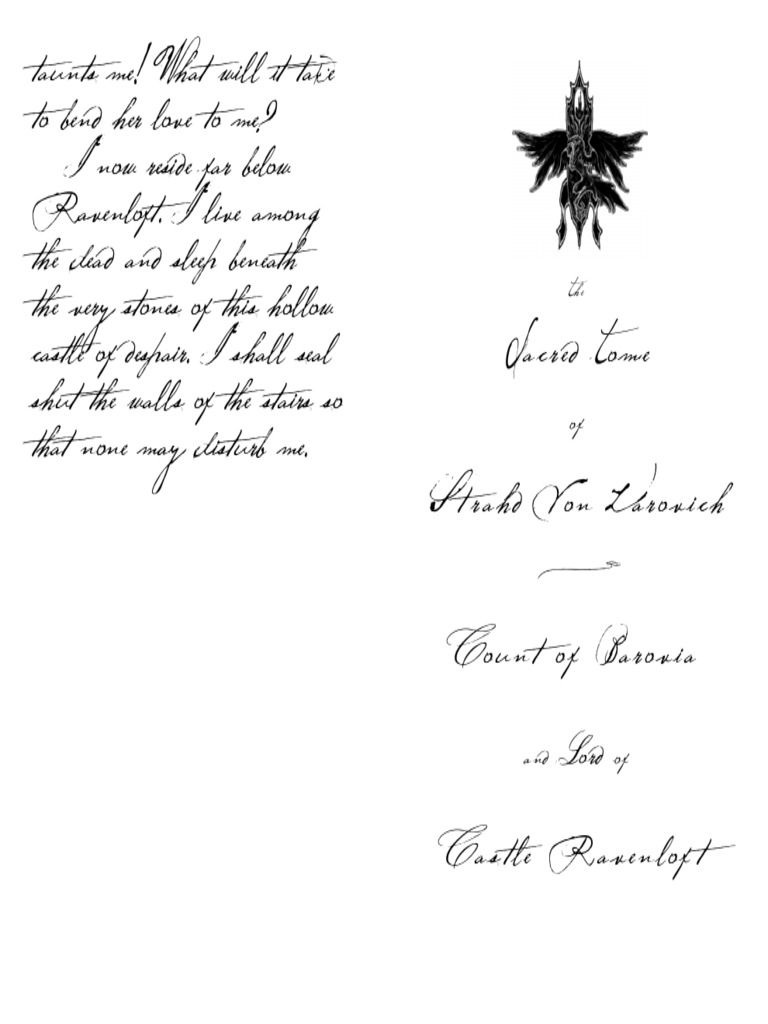 taunts me! What will it take
to bend her love to me?
I now reside far below
Ravenloft. I live among
the dead and sleep beneath
the very stones of this hollow
castle of despair. I shall seal
shut the walls of the stairs so
that none may disturb me.
the
Sacred Tome
of
Strahd Von Zarovich
Count of Barovia
and Lord of
Castle Ravenloft